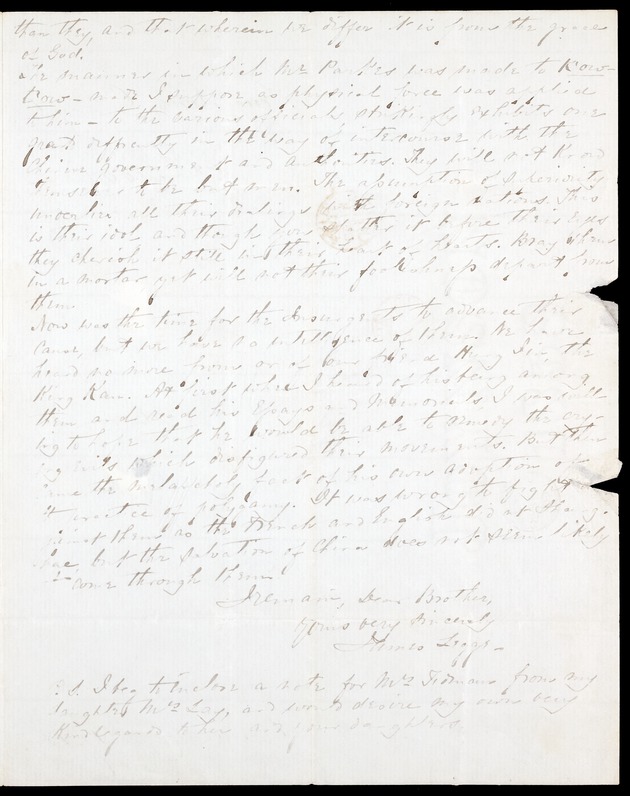 than they, and that wherein we differ it is from the grace
of God.
The manner in which Mr Parkes was made to Kow-
tow - made I suppose as physical force was applied
to him - to the various officials strikingly exhibits one
great difficulty in the way of intercourse with the
Chinese government and authorities. They will not know
themselves to be but men. The assumption of superiority
underlies all their dealings with foreign nations. This
is their idol, and though you shatter it before their eyes
they cherish it still in their heart of hearts. Bray them
in a mortar yet will not their foolishness depart from
them.
Now was the time for the Insurgents to advance their
cause, but we have no intelligence of them. We have
heard no more from or of our friend Hung Jin, the
King Kan. At first when I heard of his being among
them and read his Essays and Memorials I was willing
to hope that he would be able to remedy the
evils which disfigured their movements. But then
came the melancholy fact of his own adoption of
the practice of polygamy. It was wrong to fight
against them as the French and English did at Shang-
hae, but the salvation of China does not seem likely
to come through them.
I remain, Dear Brother,
Yours very sincerely
James Legge -
P.S. I beg to inclose a note for Mrs Tidman from my
daughter Mrs Lay, and would desire my own very
kind regards to her and your daughters.